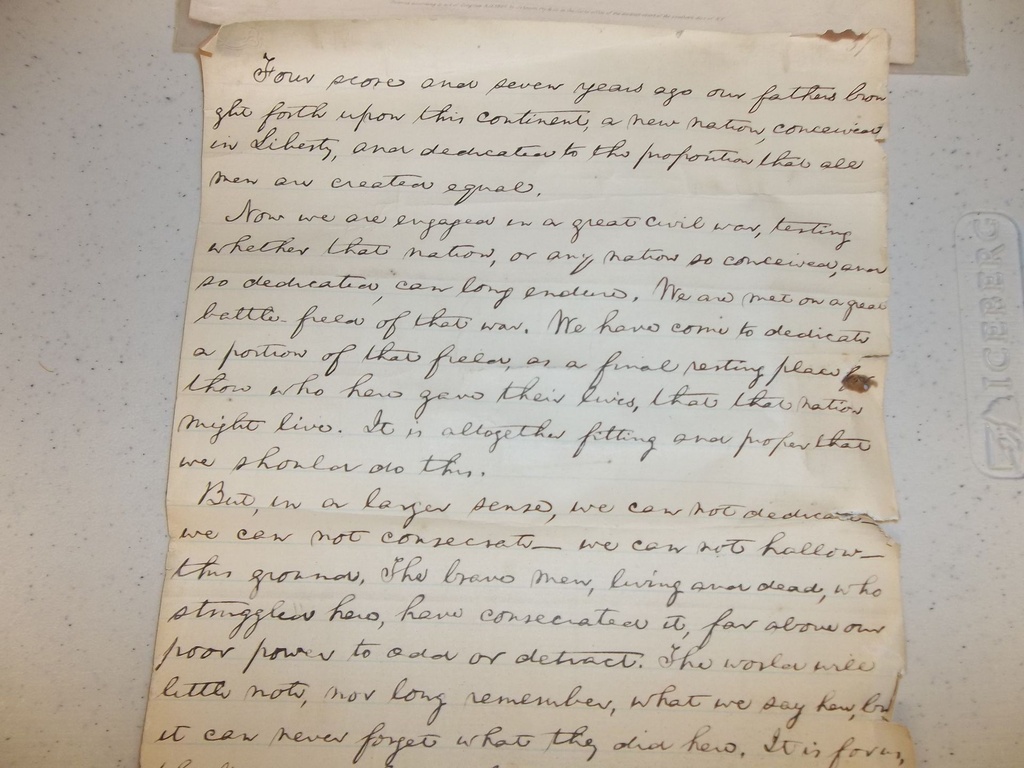 Four score and seven years ago our fathers brou
ght forth upon this continent, a new nation, conceived
in Liberty, and dedicated to the proposition that all
men are created equal.
Now we are engaged in a great civil war, testing
whether that nation, or any nation so conceived, and
so dedicated, can long endure. We are met on a great
battle-field of that war. We have come to dedicate
a portion of that field, as a final resting place for
those who here gave their lives, that that nation
might live. It is altogether fitting and proper that
we should do this.
But, in a larger sense, we can not dedicate—
we can not consecrate— we can not hallow—
this ground. The brave men, living and dead, who
struggled here, have consecrated it, far above our
poor power to add or detract. The world will
little note, nor long remember, what we say here, bu
it can never forget what they did here. It is for us,
ICEBERG